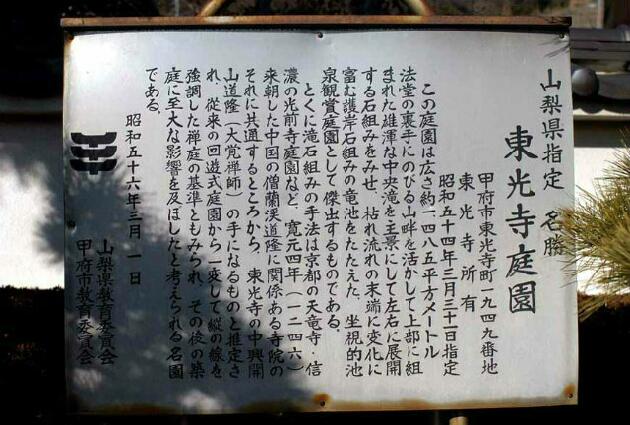 山梨県指定 名勝
東光寺庭園
甲府市東光寺町一九四九番地
東光寺所有
昭和五十四年三月三十一日指定
この庭園は広さ約一、四八五平方メートル
法堂の裏手にのびる山畔を活かして上部に組
まれた雄渾な中央滝を主景にして左右に展開
する石組みをみせ、枯れ流れの末端に変化に
富む護岸石組みの竜池をたたえた、坐視的池
泉観賞庭園として傑出するものである。
とくに滝石組みの手法は京都の天竜寺・信
濃の光前寺庭園など、寛元四年(一二四六)
来朝した中国の僧蘭渓道隆に関係ある寺院の
それに共通するところから、東光寺の中興開
山道隆(大覚禅師)の手になるものと推定さ
れ、従来の回遊式庭園から一変して縦の線を
強調した禅庭の基準ともみられ、その後の築
庭に至大な影響を及ぼしたと考えられる名園
である。
昭和五十六年三月一日
山梨県教育委員会
甲府市教育委員会